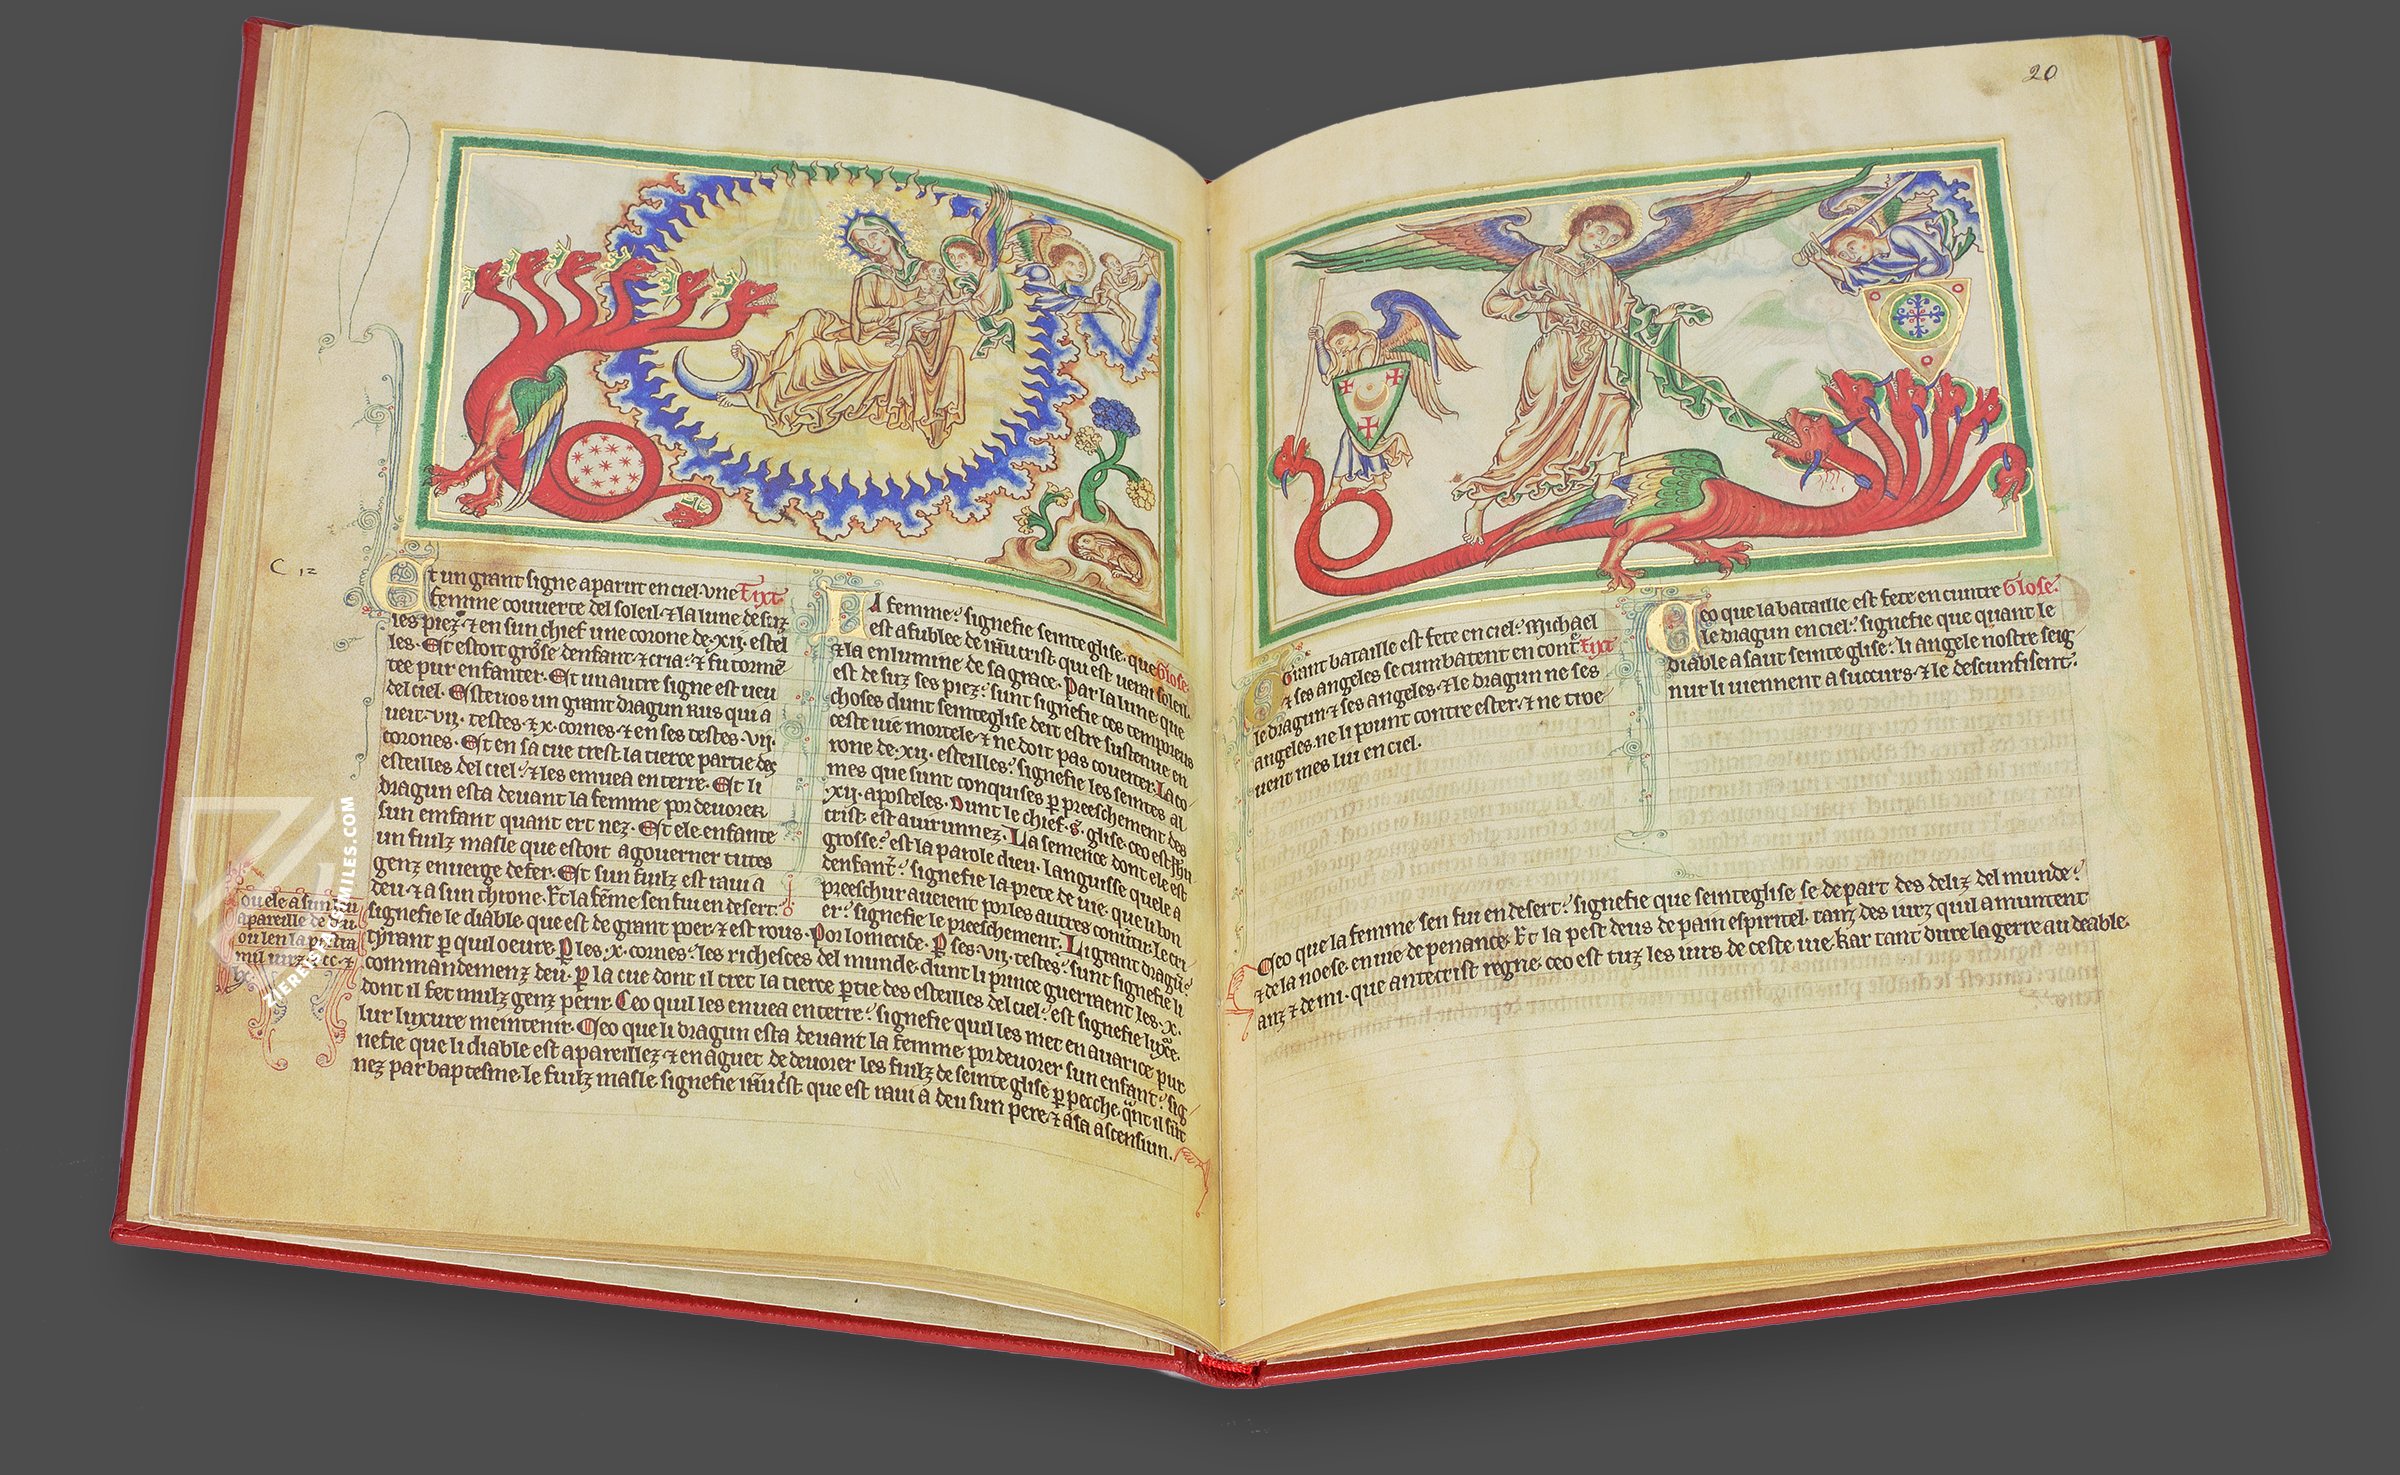 C 12
Et un grant signe aparut en ciel. vne Tixt
femme couuerte del soleil. ⁊ la lune desuz
ses piez. ⁊ en sun chief une corone de .xij. estel
les. Et estoit grosse denfant ⁊ cria. ⁊ fu torme̅
tee pur enfanter. Et un autre signe est ueu
del ciel. Esteuos un grant dragun rus qui a
ueit .vij. testes. ⁊ x. cornes. ⁊ en ses testes .vij.
corones. Et en sa cue trest la tierce partie des
esteilles del ciel. ⁊ les enuea en terre. Et li
dragun esta deuant la femme por deuorer
sun emfant quant ert nez. Et ele enfante
un fuilz masle que estoit a gouerner tutes
genz en uerge de fer. Et sun fuilz est raui a
deu. ⁊ a sun throne. Et la fe̅me sen fui en desert.
ou ele a sun liu
apareille de deu
ou len la pestra
mil iurz. ⁊ cc. ⁊
lx.
La femme signefie seinte glise. que Glose.
est afublee de ih̅u crist. qui est uerai soleil.
⁊ la enlumine de sa grace. Par la lune que
est desuz ses piez sunt signefie ces temporeus
choses dunt seinte glise deit estre sustenue en
ceste uie mortele. ⁊ ne doit pas couerter. La co
rone de .xij. esteilles signefie les seintes al
mes que sunt conquises p̲ preeschement des
.xij. aposteles. Dunt le chief. s̅. glise. ceo est ih̅u
crist est aurunnez. La semence dont ele est
grosse est la parole dieu. languisse quele a
denfanter signefie la piete de uie. que li bon
preeschur aueient por les autres conuertir. le cri
er signefie le preeschement. Li grant dragu̅
signefie le diable que est de grant poer. ⁊ est rous. Por lomecide. P̲ ses .vij. testes sunt signefie li
tyrant p̲ qui l oeure. P̲ les .x. cornes les richesces del munde. dunt li prince guerraent les .x.
commandemenz deu. p̲ la cue dont il tret la tierce p̲tie des esteilles del ciel est signefie luxure
dont il fet mulz genz perir. Ceo quil les enuea en terre signefie quil les met en auarice pur
lur luxure meintenir. Ceo que li dragun esta deuant la femme por deuorer sun enfant. sig
nefie que li diable est apareillez. ⁊ en aguet de deuorer les fuilz de seinte glise p̲ pecche. qa̅nt il su̅t
nez par baptesme. le fuilz masle signefie ih̅u crist. que est raui a deu sun pere. ⁊ a sa ascensiun.
20
Grant bataille est fete en ciel. Michael
⁊ ses angeles se cumbatent en cont̾ Tixt
le dragun. ⁊ ses angeles. ⁊ le dragun ne ses
angeles. ne li pount contre ester. ⁊ ne troe
uent mes lui en ciel.
Ceo que la bataille est fete en cuntre Glose.
le dragun en ciel signefie que quant le
diable asaut seinte glise. li angele nostre seig
nur li uiennent a succurs. ⁊ le descunfisent.
Ceo que la femme sen fui en desert signefie que seinte glise se depart des deliz del munde.
⁊ de la noese. en uie de penance. Et la pest deus de pain espiritel. tanz des iurz quil amuntent
anz ⁊ demi. que antecrist regne. ceo est tuz les iurs de ceste uie. kar tant dure la gerre au deable.
ZIEREIS FACSIMILES.COM